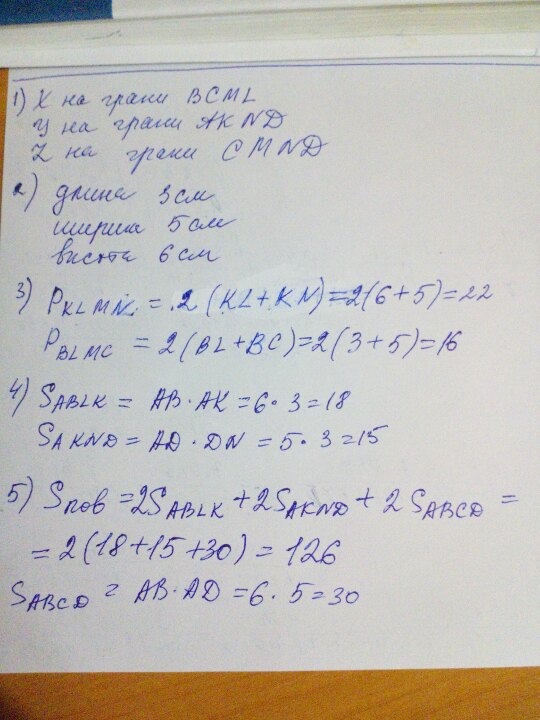 1) X на грани BCML
У на грани AKND
Z на грани CMND
2) длина 3см
ширина 5см
высота 6см
3) P KLMN = 2(KL+KN)=2(6+5)=22
P BLMC = 2(BL+BC)=2(3+5)=16
4) S ABLK = AB·AK=6·3=18
S AKND = AD·DN=5·3=15
5) Sпов = 2S ABLK + 2S AKND + 2 S ABCD =
= 2(18+15+30) = 126
S ABCD = AB·AD=6·5=30